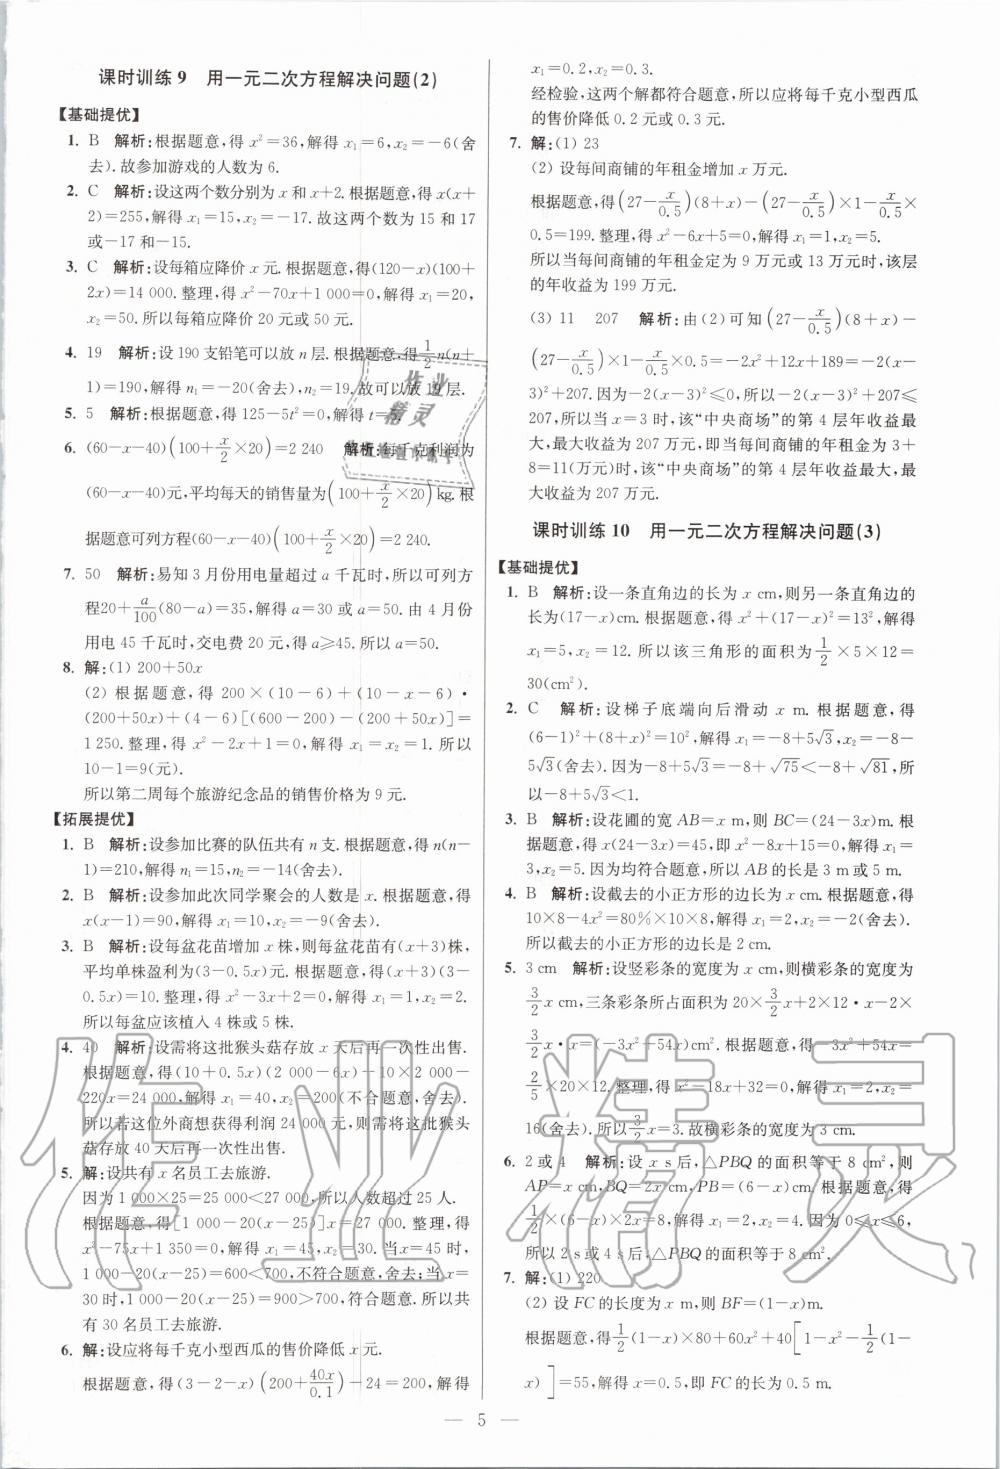 课时训练 9　用一元二次方程解决问题(2)
【基础提优】
1. B　解析:根据题意,得 x²=36,解得 x₁=6,x₂=-6(舍
去).故参加游戏的人数为 6.
2. C　解析:设这两个数分别为 x 和 x+2.根据题意,得 x(x+
2)=255,解得 x₁=15,x₂=-17.故这两个数为 15 和 17
或-17 和-15.
3. C　解析:设每箱应降价 x 元.根据题意,得(120-x)(100+
2x)=14 000.整理,得 x²-70x+1 000=0,解得 x₁=20,
x₂=50.所以每箱应降价 20 元或 50 元.
4. 19　解析:设 190 支铅笔可以放 n 层.根据题意,得 1/2 n(n+
1)=190,解得 n₁=-20(舍去),n₂=19.故可以放 19 层.
5. 5　解析:根据题意,得 125-5t²=0,解得 t=5.
6. (60-x-40)(100+x/2×20)=2 240　解析:每千克利润为
(60-x-40)元,平均每天的销售量为(100+x/2×20)kg.根
据题意可列方程(60-x-40)(100+x/2×20)=2 240.
7. 50　解析:易知 3 月份用电量超过 a 千瓦时,所以可列方
程20+a/100(80-a)=35,解得 a=30 或 a=50.由 4 月份
用电 45 千瓦时,交电费 20 元,得 a≥45.所以 a=50.
8. 解:(1) 200+50x
(2) 根据题意,得 200×(10-6)+(10-x-6)·
(200+50x)+(4-6)[(600-200)-(200+50x)]=
1 250.整理,得 x²-2x+1=0,解得 x₁=x₂=1.所以
10-1=9(元).
所以第二周每个旅游纪念品的销售价格为 9 元.
【拓展提优】
1. B　解析:设参加比赛的队伍共有 n 支.根据题意,得 n(n-
1)=210,解得 n₁=15,n₂=-14(舍去).
2. B　解析:设参加此次同学聚会的人数是 x.根据题意,得
x(x-1)=90,解得 x₁=10,x₂=-9(舍去).
3. B　解析:设每盆花苗增加 x 株,则每盆花苗有(x+3)株,
平均单株盈利为(3-0.5x)元.根据题意,得(x+3)(3-
0.5x)=10.整理,得 x²-3x+2=0,解得 x₁=1,x₂=2.
所以每盆应该植入 4 株或 5 株.
4. 40　解析:设需将这批猴头菇存放 x 天后再一次性出售.
根据题意,得(10+0.5x)(2 000-6x)-10×2 000-
220x=24 000,解得 x₁=40,x₂=200(不合题意,舍去).
所以若这位外商想获得利润 24 000 元,可以将这批猴头
菇存放 40 天后再一次性出售.
5. 解:设共有 x 名员工去旅游.
因为 1 000×25=25 000<27 000,所以人数超过 25 人.
根据题意,得[1 000-20(x-25)]x=27 000.整理,得
x²-75x+1 350=0,解得 x₁=45,x₂=30.当 x=45 时,
1 000-20(x-25)=600<700,不符合题意,舍去;当 x=
30时,1 000-20(x-25)=900>700,符合题意.所以共
有 30 名员工去旅游.
6. 解:设应将每千克小型西瓜的售价降低 x 元.
根据题意,得(3-2-x)(200+40x/0.1)-24=200,解得
x₁=0.2,x₂=0.3.
经检验,这两个解都符合题意,所以应将每千克小型西瓜
的售价降低 0.2 元或 0.3 元.
7. 解:(1) 23
(2) 设每间商铺的年租金增加 x 万元.
根据题意,得(27-x/0.5)(8+x)-(27-x/0.5)×1-x/0.5×
0.5=199.整理,得 x²-6x+5=0,解得 x₁=1,x₂=5.
所以当每间商铺的年租金定为 9 万元或 13 万元时,该层
的年收益为 199 万元.
(3) 11　207　解析:由(2)可知(27-x/0.5)(8+x)-
(27-x/0.5)×1-x/0.5×0.5=-2x²+12x+189=-2(x-
3)²+207.因为-2(x-3)²≤0,所以-2(x-3)²+207≤
207,所以当 x=3 时,该“中央商场”的第 4 层年收益最
大,最大收益为 207 万元,即当每间商铺的年租金为 3+
8=11(万元)时,该“中央商场”的第 4 层年收益最大,最
大收益为 207 万元.
课时训练 10　用一元二次方程解决问题(3)
【基础提优】
1. B　解析:设一条直角边的长为 x cm,则另一条直角边的
长为(17-x)cm.根据题意,得 x²+(17-x)²=13²,解得
x₁=5,x₂=12.所以该三角形的面积为 1/2×5×12=
30(cm²).
2. C　解析:设梯子底端向后滑动 x m.根据题意,得
(6-1)²+(8+x)²=10²,解得 x₁=-8+5√3,x₂=-8-
5√3(舍去).因为-8+5√3=-8+√75<-8+√81,所
以-8+5√3<1.
3. B　解析:设花圃的宽 AB=x m,则 BC=(24-3x)m.根
据题意,得 x(24-3x)=45,即 x²-8x+15=0,解得 x₁=
3,x₂=5.因为均符合题意,所以 AB 的长是 3 m 或 5 m.
4. B　解析:设截去的小正方形的边长为 x cm.根据题意,得
10×8-4x²=80%×10×8,解得 x₁=2,x₂=-2(舍去).
所以截去的小正方形的边长是 2 cm.
5. 3 cm　解析:设竖彩条的宽度为 x cm,则横彩条的宽度为
3/2 x cm,三条彩条所占面积为 20×3/2 x+2×12·x-2×
3/2 x·x=(-3x²+54x)cm².根据题意,得-3x²+54x=
2/5×20×12.整理,得 x²-18x+32=0,解得 x₁=2,x₂=
16(舍去).所以 3/2 x=3.故横彩条的宽度为 3 cm.
6. 2 或 4　解析:设 x s 后,△PBQ 的面积等于 8 cm²,则
AP=x cm,BQ=2x cm,PB=(6-x) cm.根据题意,得
1/2×(6-x)×2x=8,解得 x₁=2,x₂=4.因为 0≤x≤6,
所以 2 s或 4 s后,△PBQ 的面积等于 8 cm².
7. 解:(1) 220
(2) 设 FC 的长度为 x m,则 BF=(1-x)m.
根据题意,得 1/2(1-x)×80+60x²+40[1-x²-1/2(1-
x)]=55,解得 x=0.5,即 FC 的长为 0.5 m.
— 5 —
作业精灵
作业
精灵